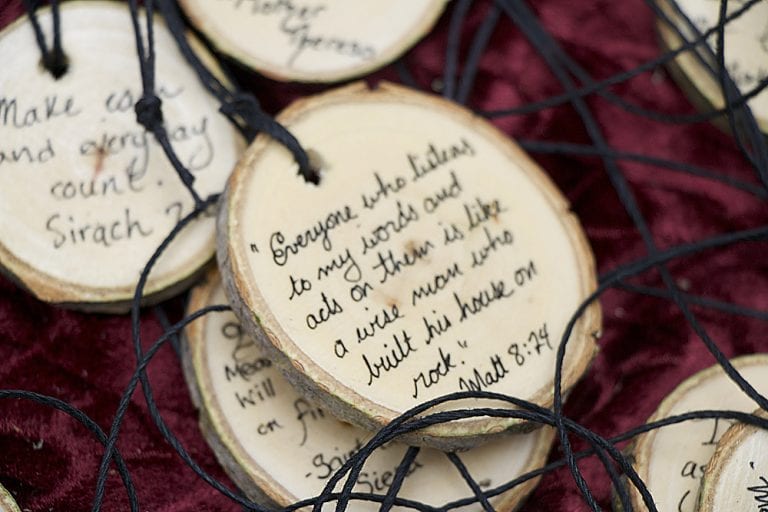 Mother
Make each
and everyday
count.
Sirach
"Everyone who listens
to my words and
acts on them is like
a wise man who
built his house on
rock."
Matt 8:24
on
Saint
Siena